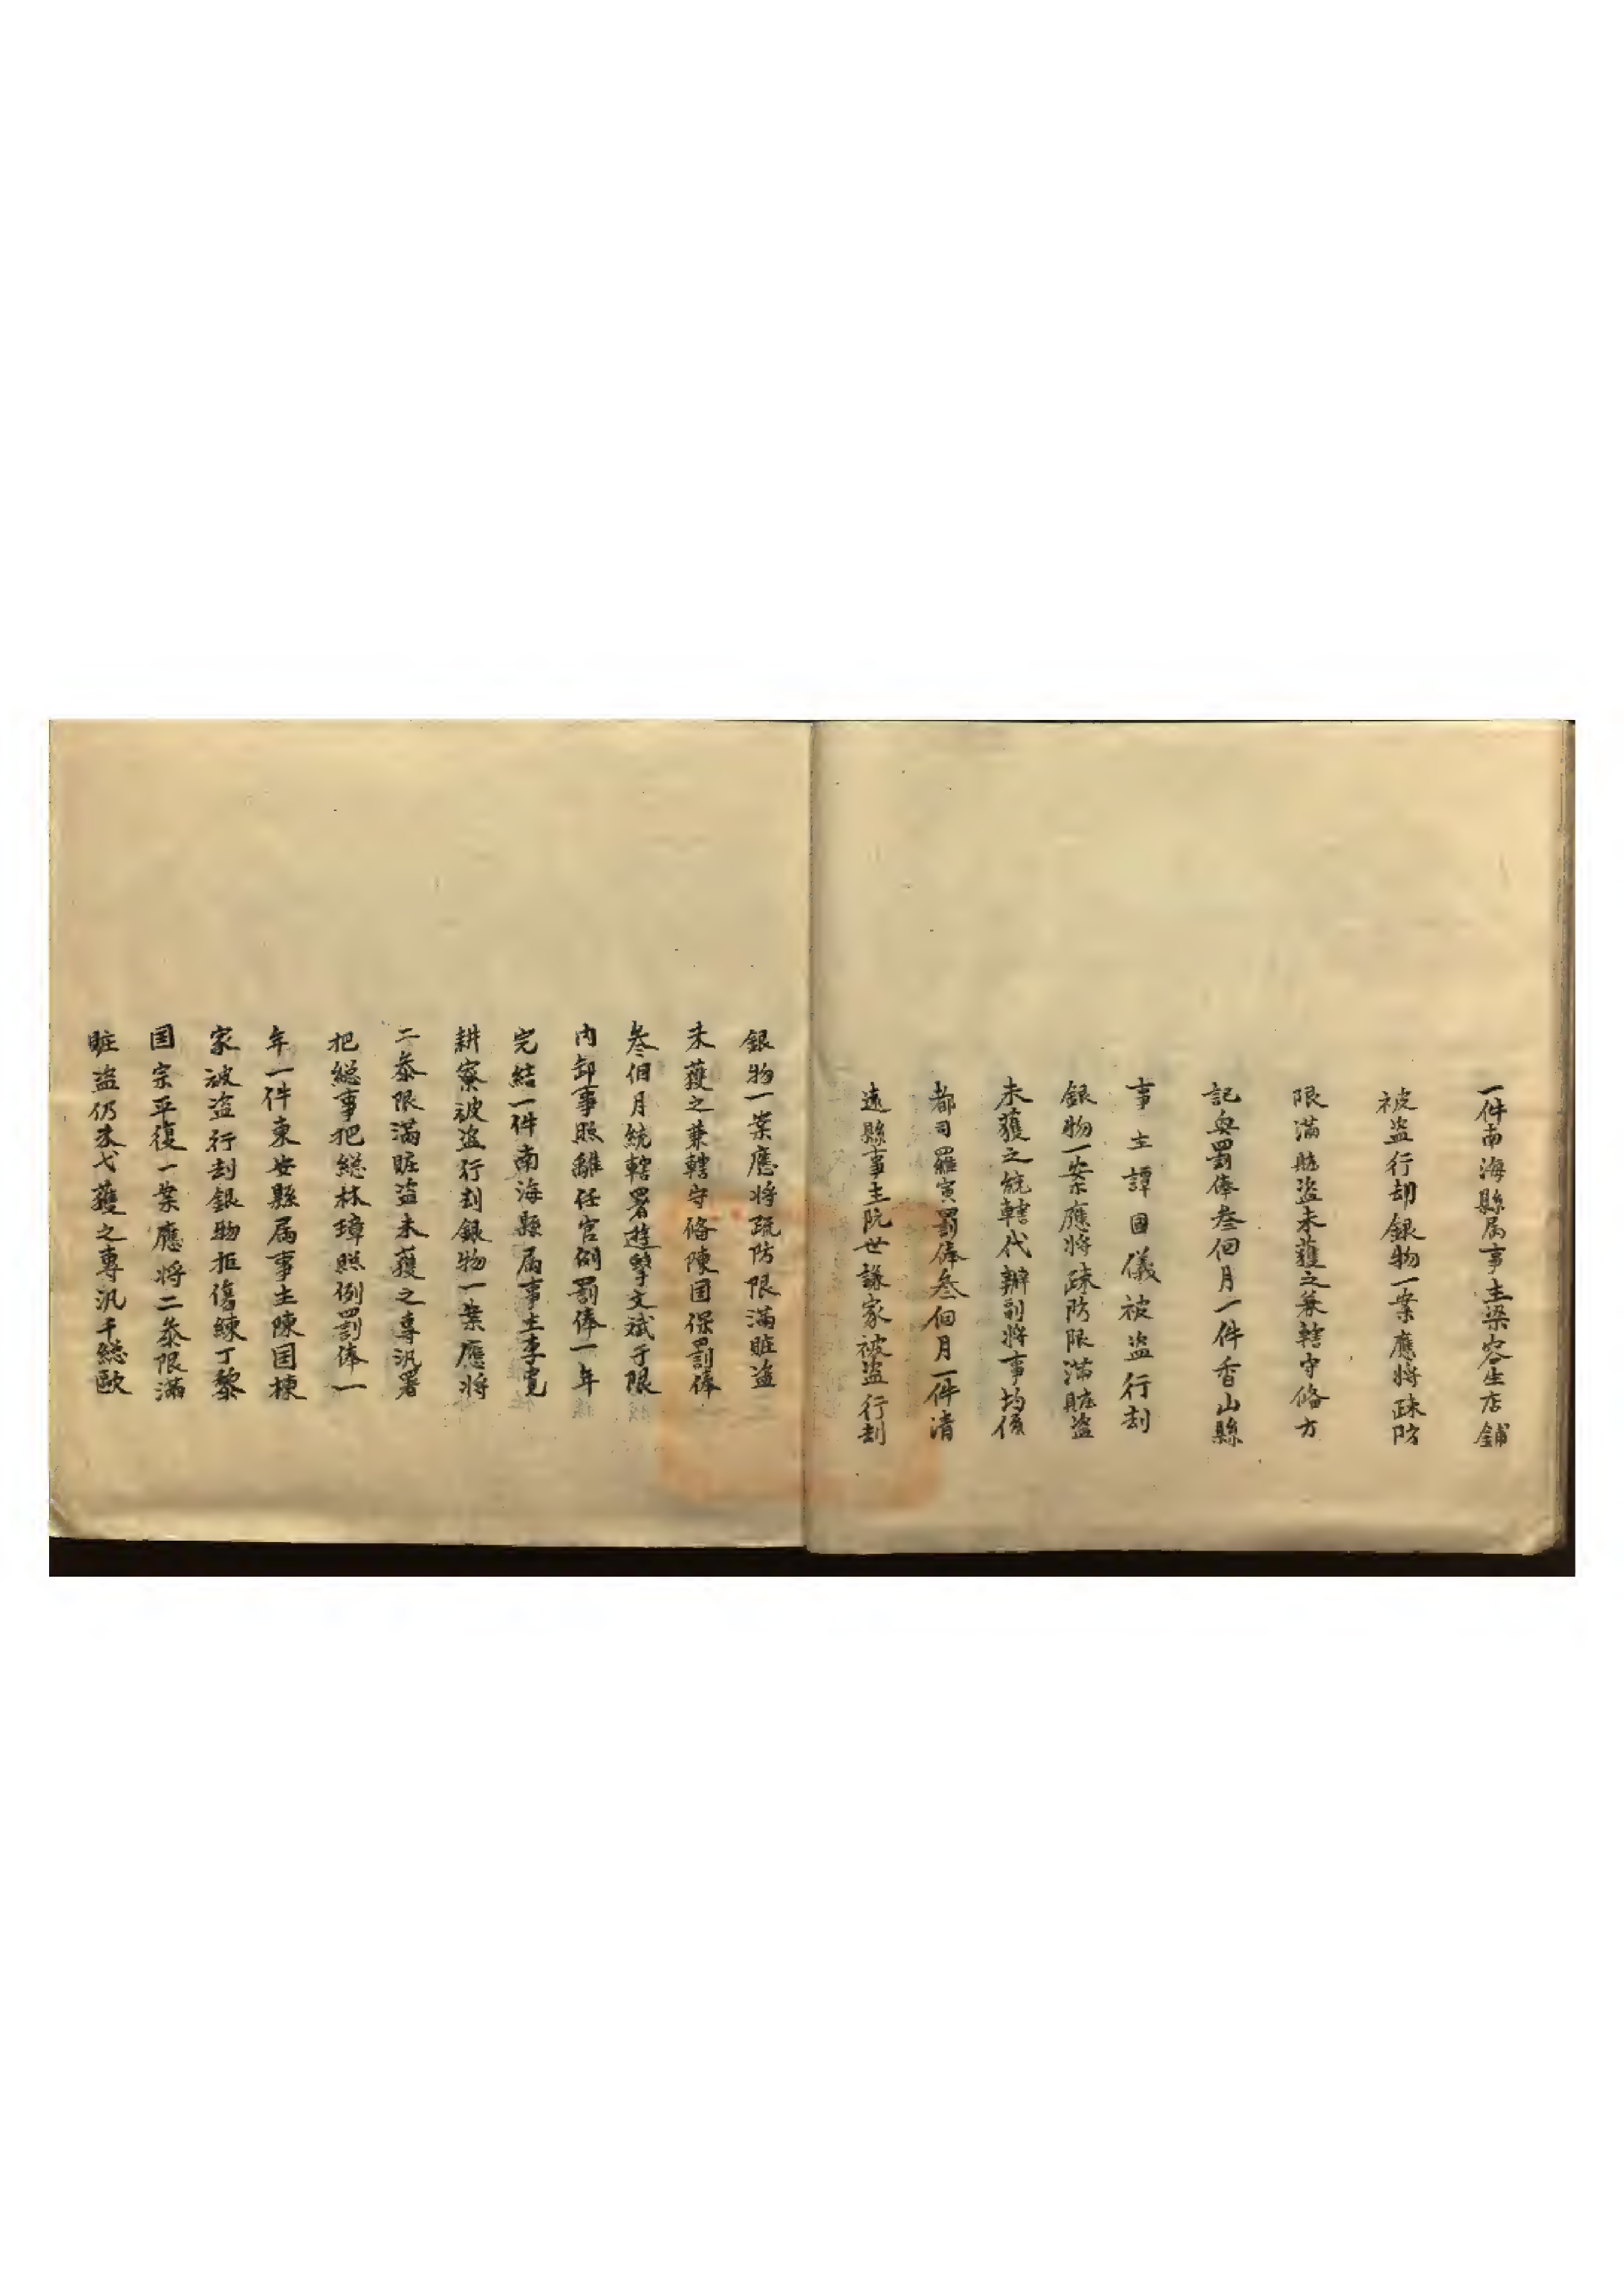 一件南海縣属事主梁容生店舖
被盗行刼銀物一案應將疎防
限滿賍盗未獲之兼轄守俻方
記奥罰俸叁個月一件香山縣
事主譚国儀被盗行刼
銀物一案應將疎防限滿賍盗
未獲之統轄代辦副將事均係
都司羅寅罰俸叁個月一件清
遠縣事主阮世謙家被盗行刼
銀物一案應将疏防限滿賍盗
未獲之兼轄守俻陳国保罰俸
叁個月統轄署遊擊文斌于限
内卸事照離任官例罰俸一年
完結一件南海縣属事主李寛
耕寮被盗行刦銀物一案應将
二叅限滿賍盗未獲之專汛署
把総事把総林璋照例罰俸一
年一件東安縣属事主陳国棟
家被盗行刦銀物拒傷練丁黎
国宗平復一案應将二叅限滿
賍盗仍未弋獲之專汛千総歐